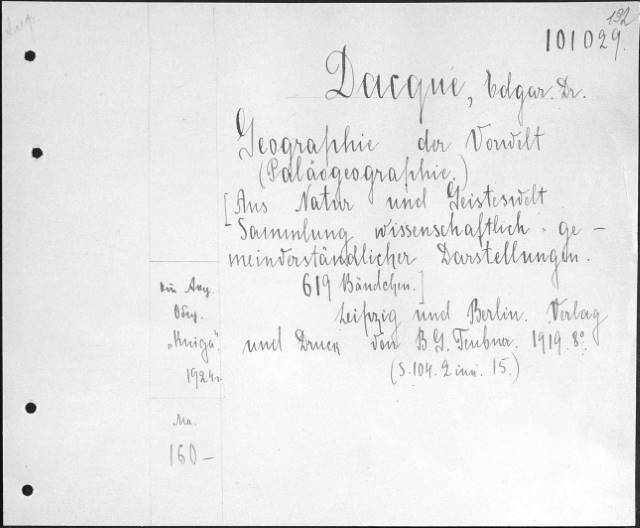 132
101029.
Dacqué, Edgar. Dr.
Geographie der Vorwelt
(Paläogeographie.)
[Aus Natur und Geisteswelt
Sammlung wissenschaftlich-ge-
meinverständlicher Darstellungen.
619 Bändchen.]
Leipzig und Berlin. Verlag
und Druck von B.G. Teubner. 1919. 8°.
(S. 104. 2 15.)
"Kniga"
1924
Ma.
160-